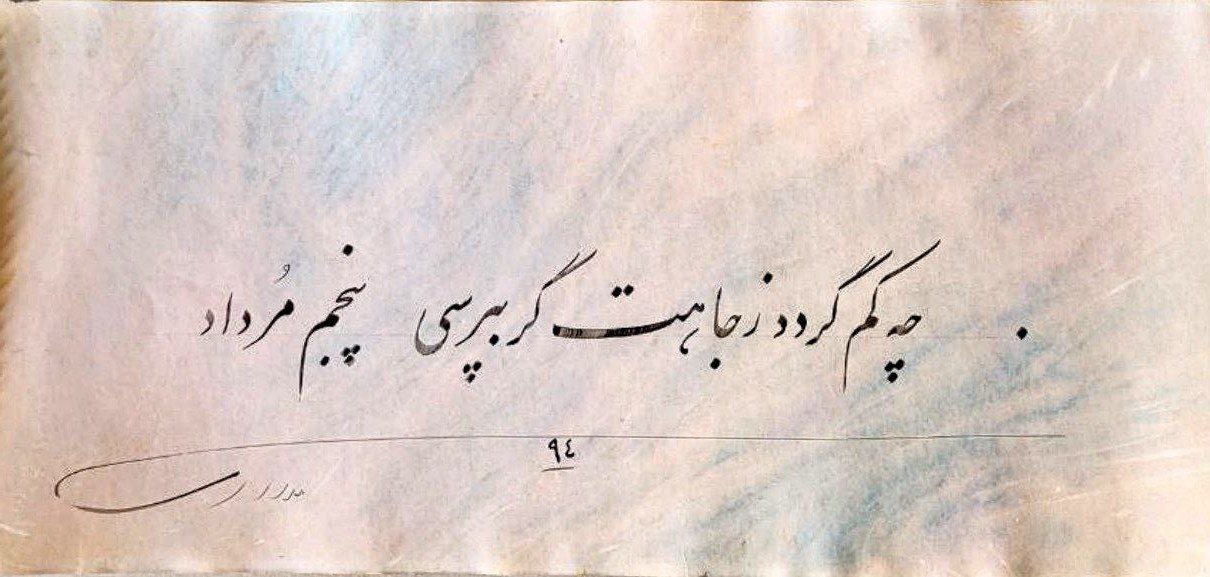 چه کم گردد ز جاهت گر بپرسی پنجم مُرداد
٩٤